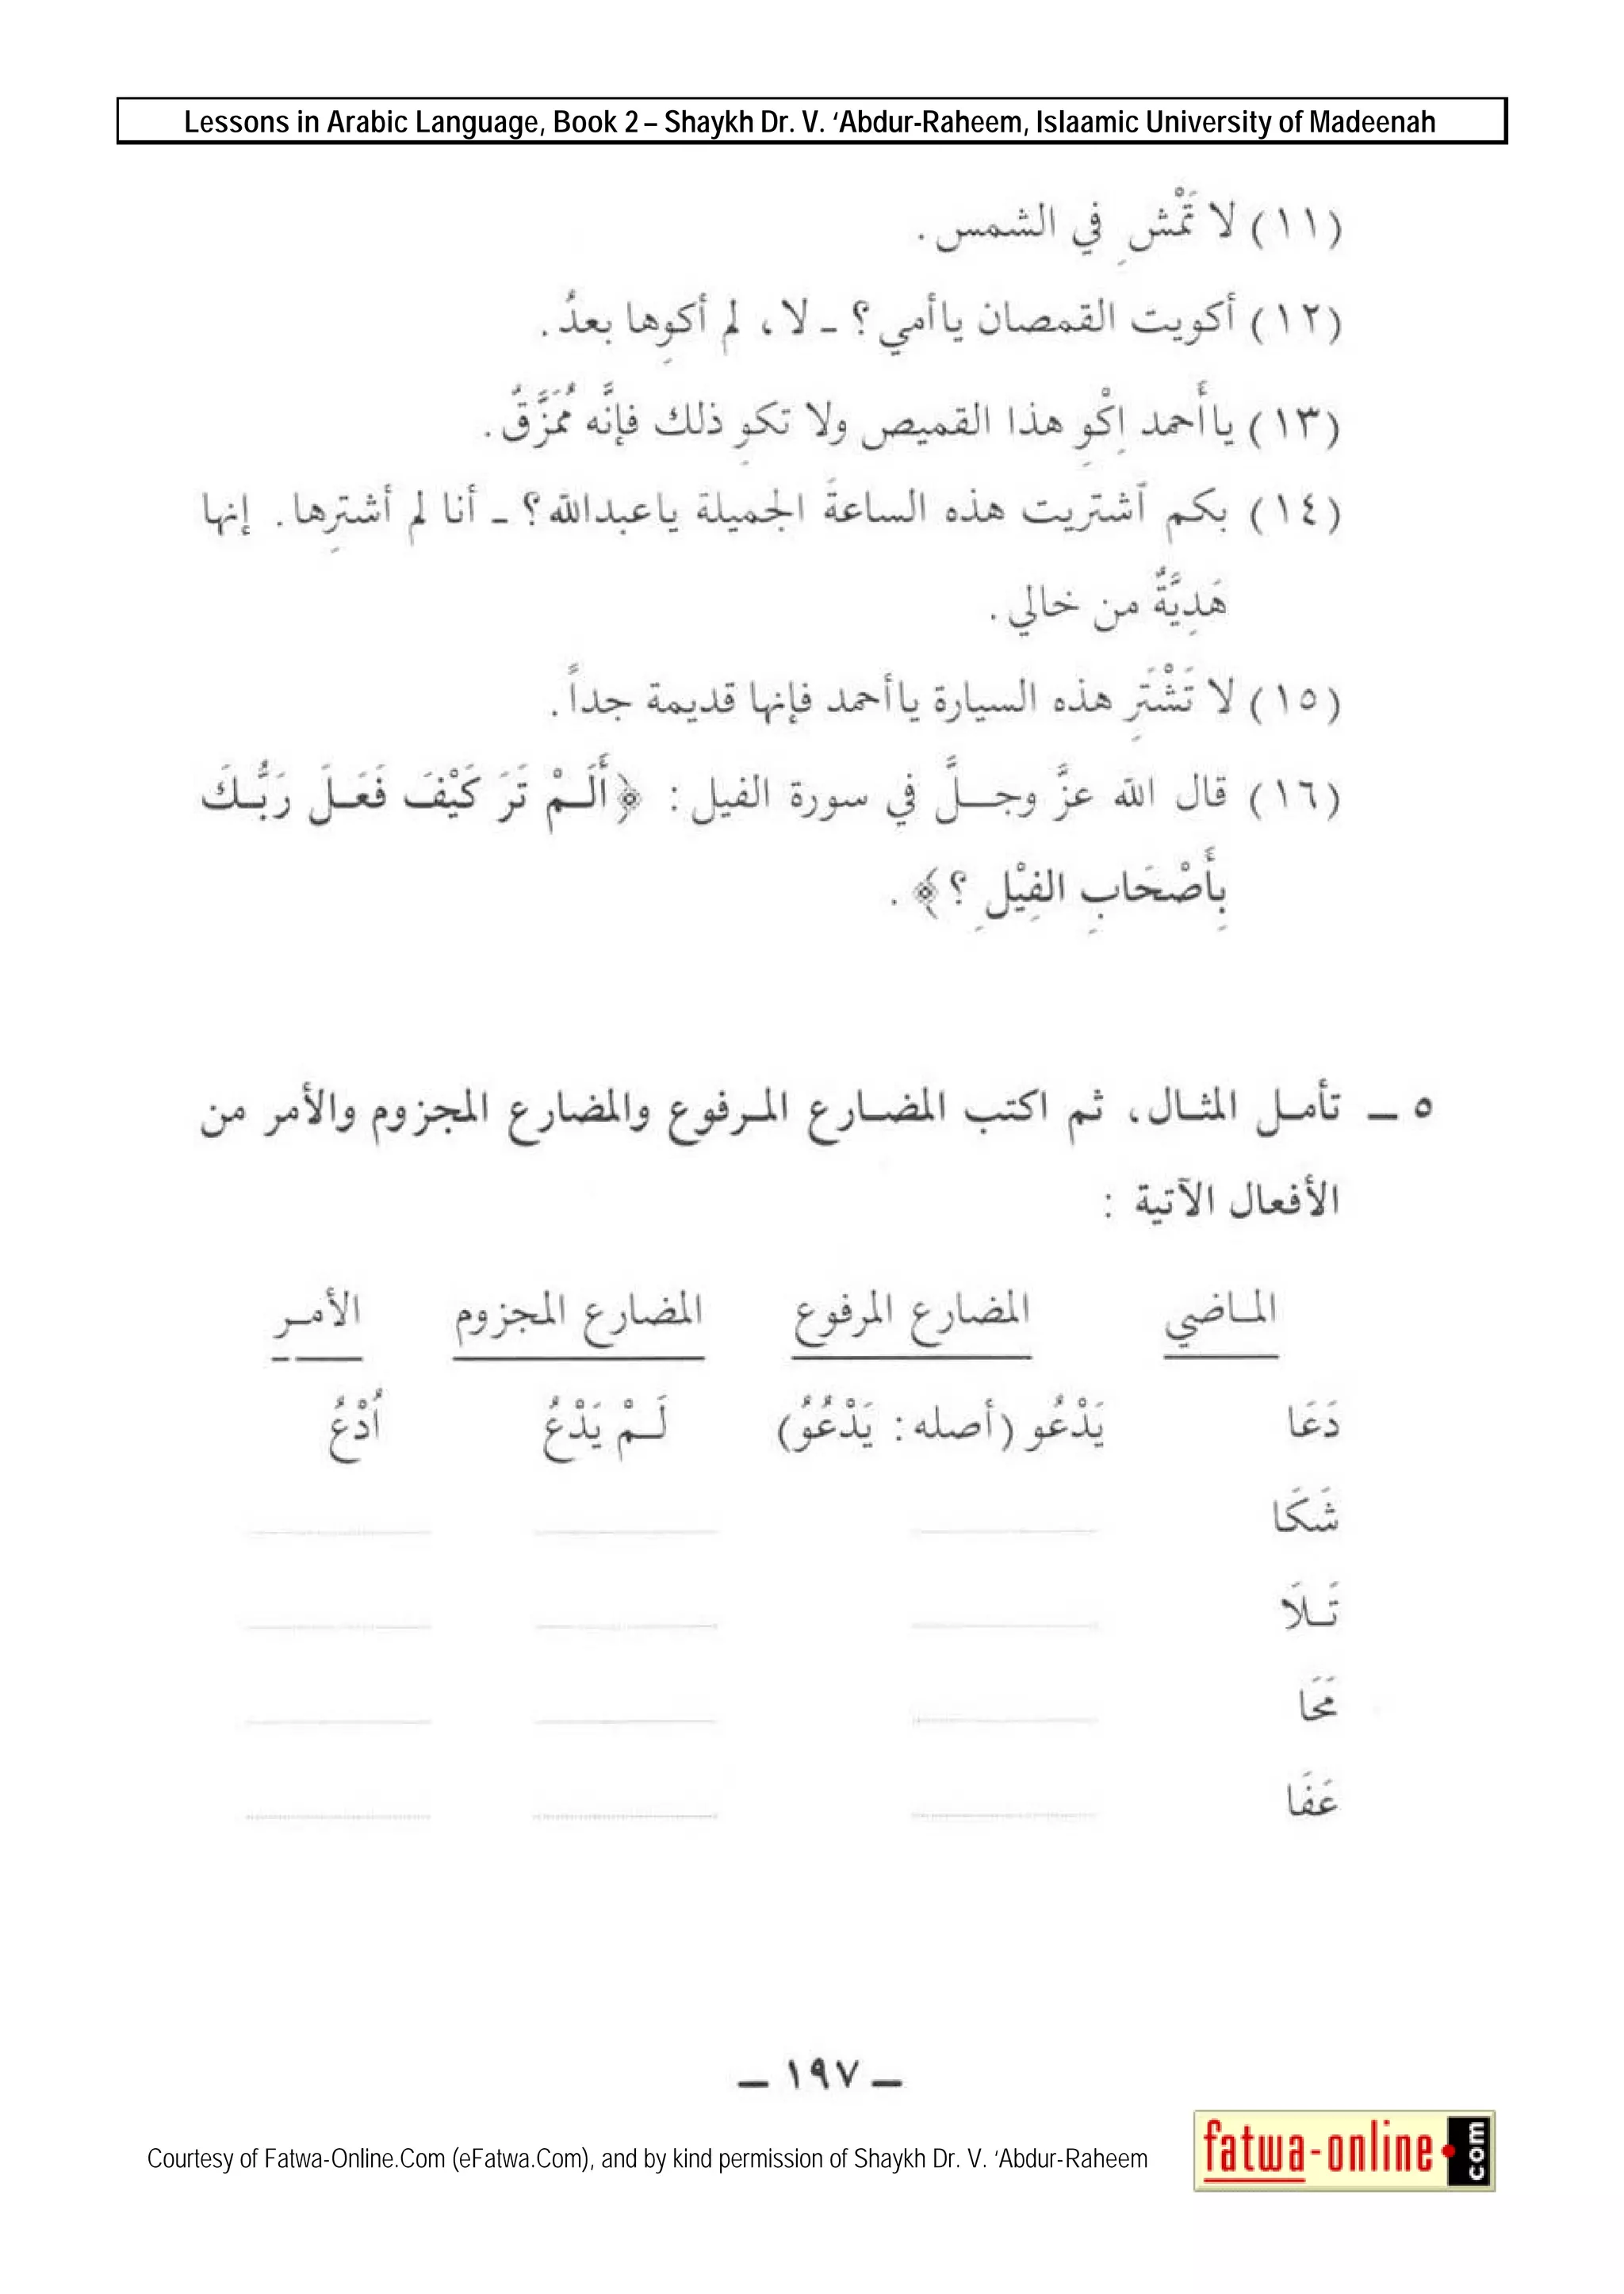 Lessons in Arabic Language, Book 2 – Shaykh Dr. V. ‘Abdur-Raheem, Islaamic University of Madeenah
(١١) لا تَمْشِ في الشمس .
(١٢) أكويت القمصان ياأمي ؟ - لا ، لم أكوِها بعدُ .
(١٣) ياأَحمد اِكْوِ هذا القميص ولا تكوِ ذلك فإنَّه مُمَزَّقٌ .
(١٤) بكم ٱشتريت هذه الساعةَ الجميلة ياعبدالله ؟ - أنا لم أشترِها . إنها
هَدِيَّةٌ من خالي .
(١٥) لا تَشْتَرِ هذه السيارة ياأحمد فإنها قديمة جداً .
(١٦) قال الله عزَّ وجـــلَّ في سورة الفيل : ﴿أَلَـمْ تَرَ كَيْفَ فَعَـلَ رَبُّـكَ
بِأَصْحَابِ الفِيْلِ ؟﴾ .
٥ ــ تأمـل المثـال ، ثم اكتب المضـارع المـرفوع والمضارع المجزوم والأمر من
الأفعال الآتية :
المـاضي المضارع المرفوع المضارع المجزوم الأمـر
دَعَا يَدْعُو (أصله : يَدْعُوُ) لَـمْ يَدْعُ اُدْعُ
شَكَا
تَـلاَ
مَحَا
عَفَا
ــ ١٩٧ ــ
Courtesy of Fatwa-Online.Com (eFatwa.Com), and by kind permission of Shaykh Dr. V. ‘Abdur-Raheem
fatwa-online.com